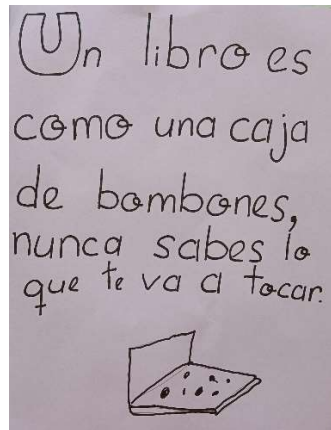 Un libro es
como una caja
de bombones,
nunca sabes lo
que te va a tocar.